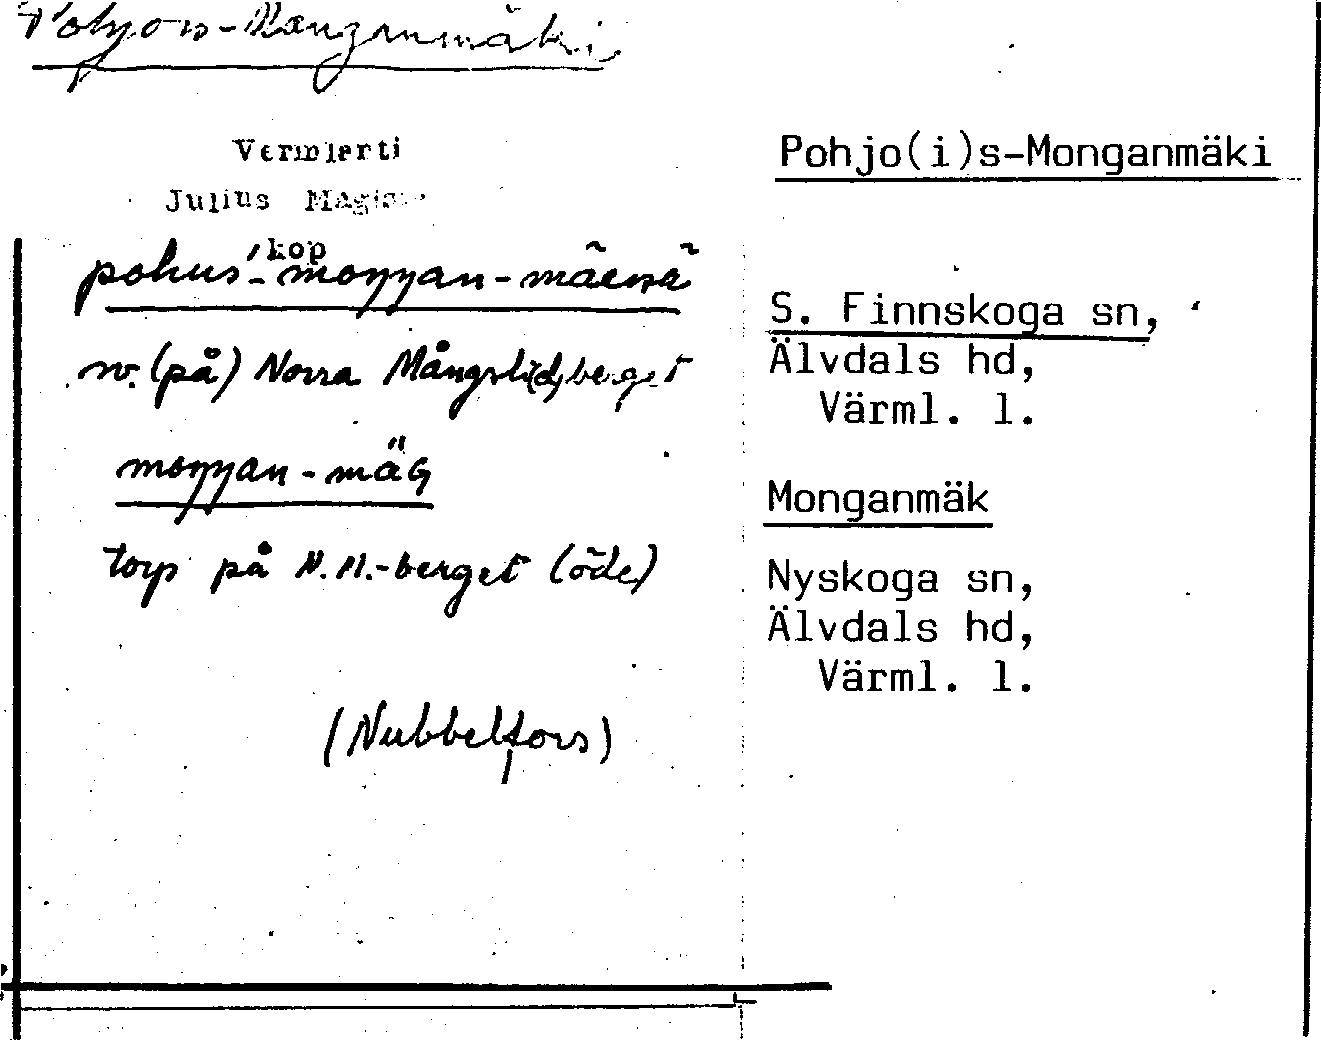 Vermlerti
Julius Mägiste
kop
mäki
w. (på) Norra Mångslidberget
moŋŋan-mäG
torp på N. M.-berget (öde)
(Nubbelfors)
Pohjo(i)s-Monganmäki
S. Finnskoga sn,
Älvdals hd,
Värml. l.
Monganmäk
Nyskoga sn,
Älvdals hd,
Värml. l.